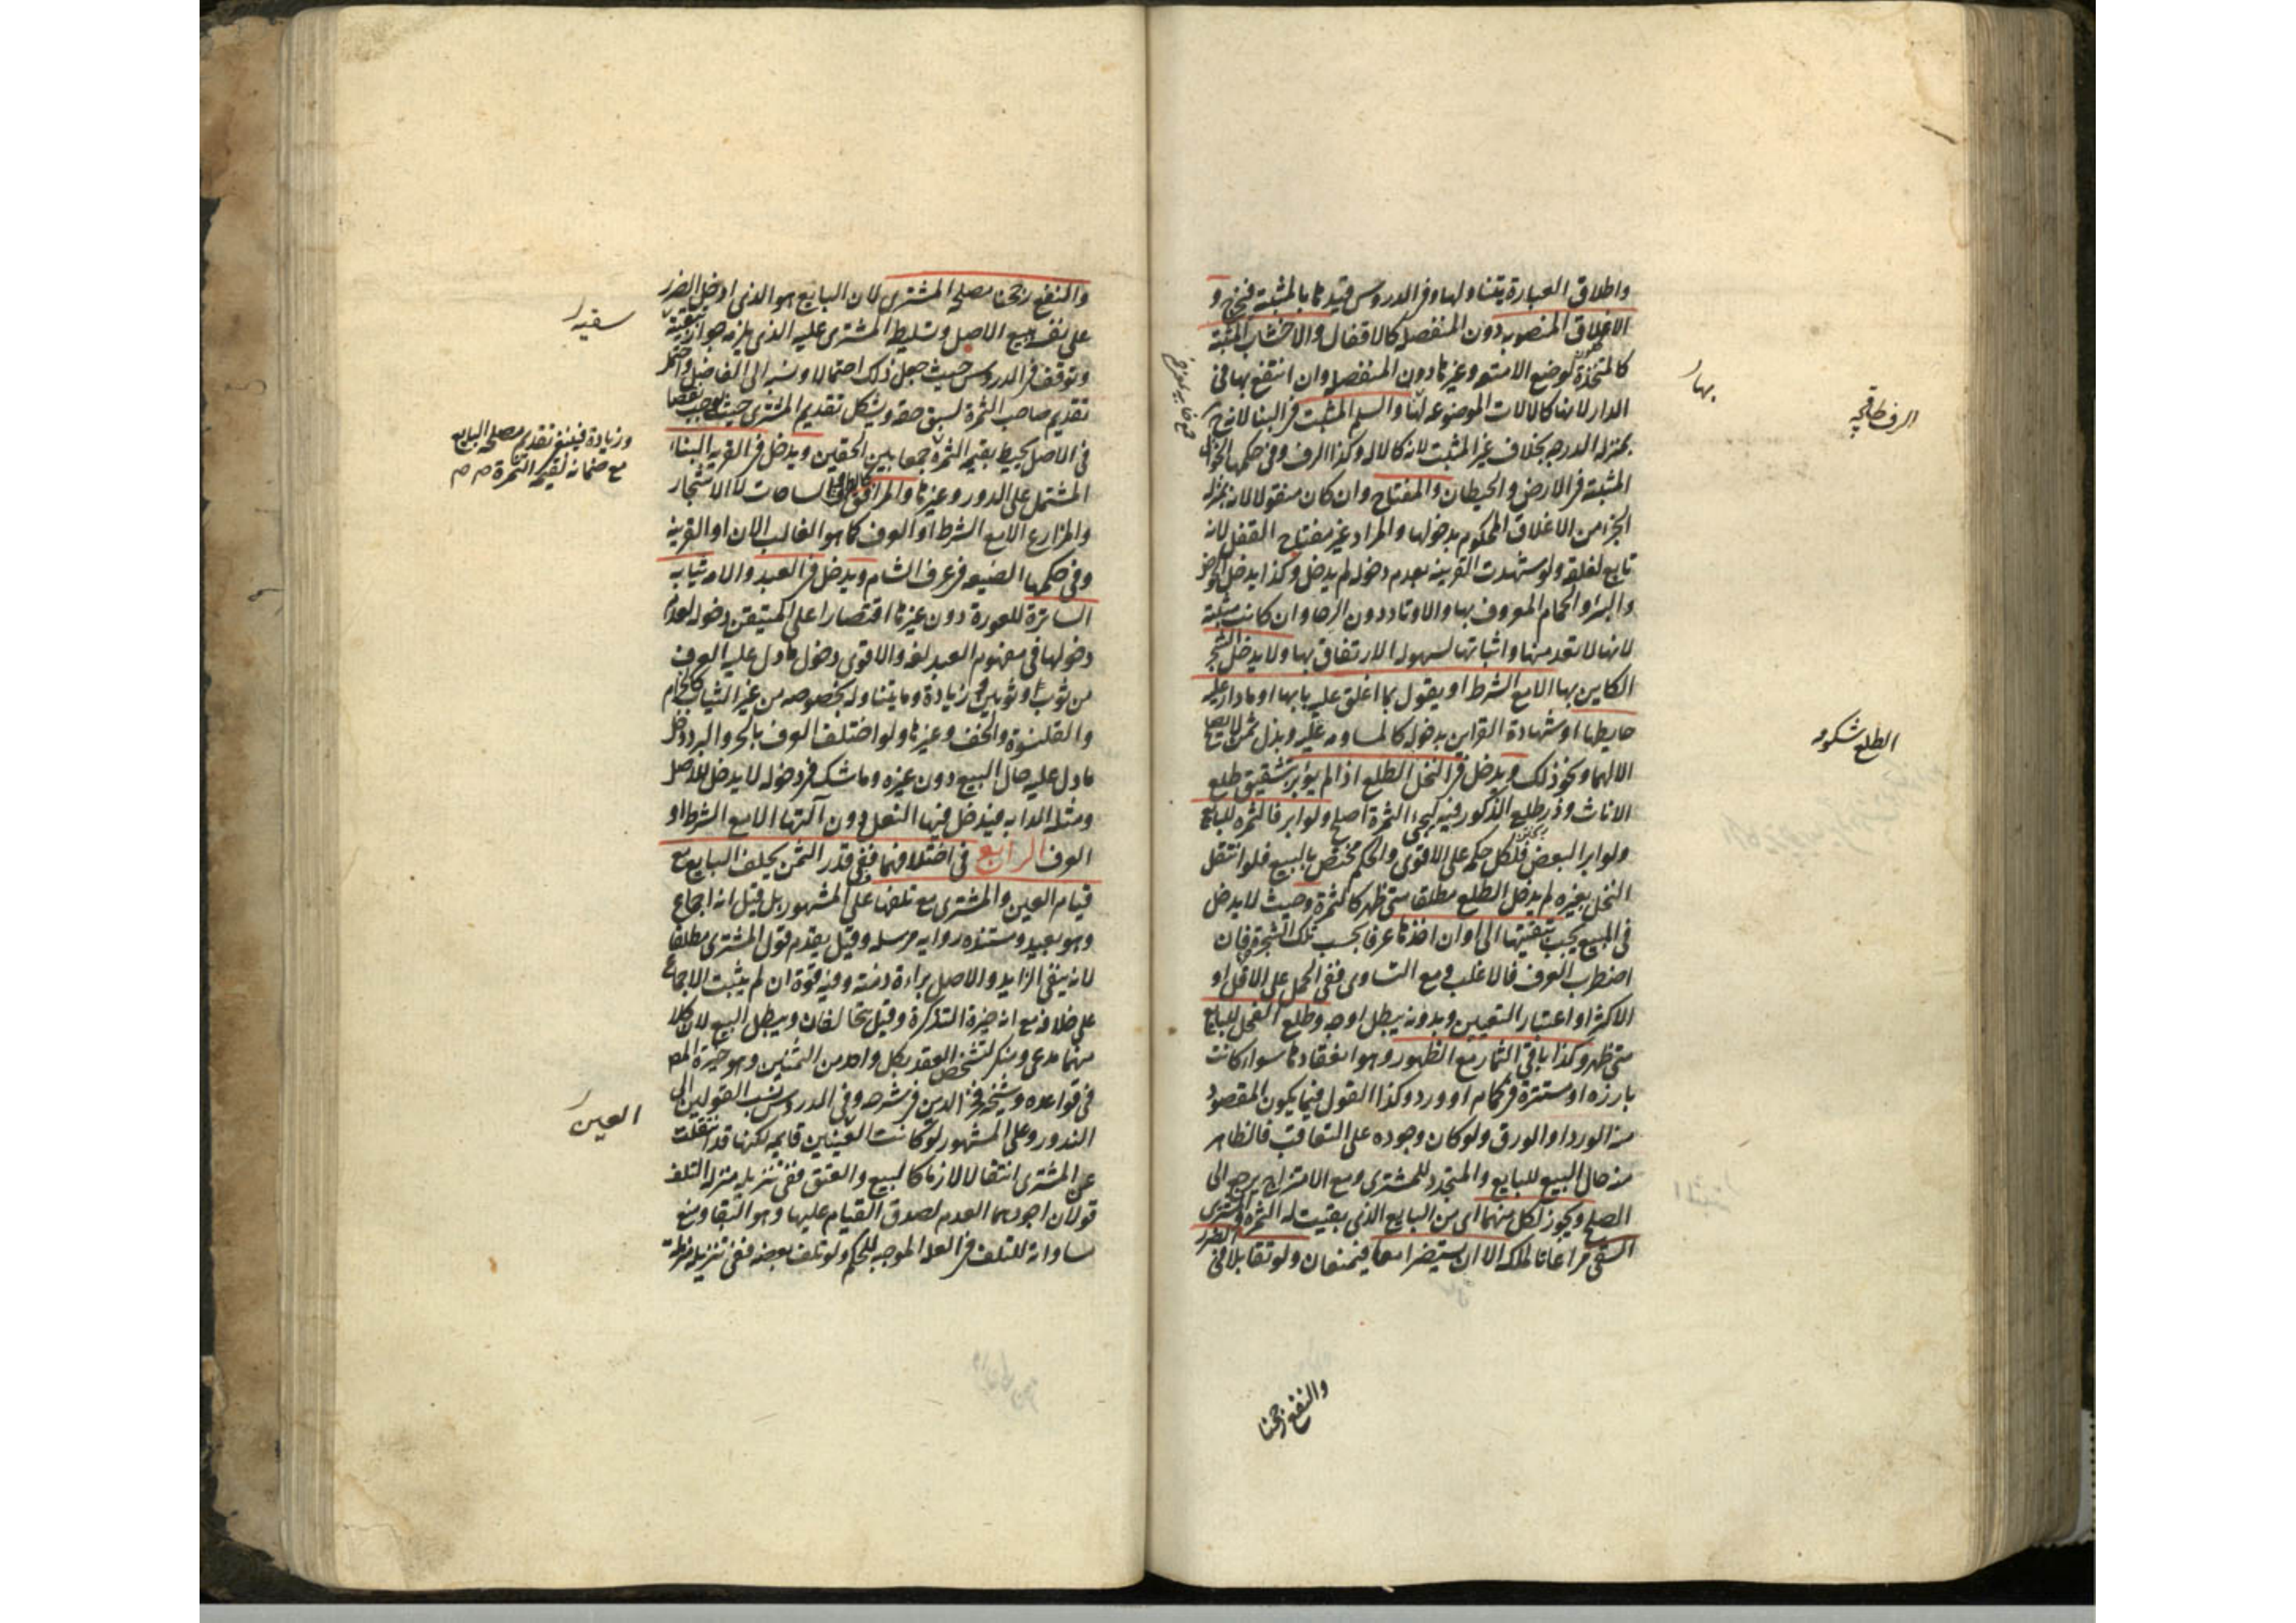 واطلاق العبارة يتناولها وفى الدروس قيدها بالمثبتة فيخرج و
الاغلاق المنصوبة دون المنفصلة كالاقفال والاخشاب المثبتة
كالمتخذة لوضع الامتعة وغيرها دون المنفصلة وان انتفع بها فى
الدار لانها كالالات الموضوعة بها والسلم المثبت فى البنا لانه ح
بمنزلة الدرجة بخلاف غير المثبت لانه كالالة وكذا الرف وفى حكمها الخوابى
المثبتة فى الارض والحيطان والمفتاح وان كان منقولا لانه بمنزلة
الجزء من الاغلاق المحكوم بدخولها والمراد غير مفتاح القفل لانه
تابع لغلقه ولو شهدت القرينة بعدم دخوله لم يدخل وكذا يدخل الحوض
والبئر والحمام المعروف بها والاوتاد دون الرحا وان كانت مثبتة
لانها لا تعد منها واثباتها لسهولة الارتفاق بها ولا يدخل الشجر
الكاين بها الا مع الشرط او يقول بما اغلق عليه بابها او ما دار عليه
حايطها او شهادة القراين بدخوله كالمساومة عليه وبذل ثمن لا يصلح
الا لهما ونحو ذلك ويدخل فى النخل الطلع اذا لم يؤبر بتشقيق طلع
الاناث وذر طلع الذكور فيه ليجى الثمرة اصلح ولو ابر فالثمرة للبايع
ولو ابر البعض فلكل حكمه على الاقوى والحكم مختص بالبيع فلو انتقل
النخل بغيره لم يدخل الطلع مطلقا متى ظهر كالثمرة وحيث لا يدخل
فى المبيع يجب تبقيتها الى اوان اخذها عرفا بحسب تلك الشجرة فان
اضطرب العرف فالاغلب ومع التساوى ففى الحمل على الاقل او
الاكثر او اعتبار التعيين وبدونه يبطل اوجه وطلع الفحل للبايع
متى ظهر وكذا باقى الثمار مع الظهور وهو انعقادها سواء كانت
بارزة او مستترة فى كمام او ورد وكذا القول فيما يكون المقصود
منه الورد او الورق ولو كان وجوده على التعاقب فالظاهر
منه حال البيع للبايع والمتجدد للمشترى ومع الامتزاج يرجع الى
الصلح ويجوز لكل منهما اى من البايع الذى بقيت له الثمرة والمشترى
السقى مراعاتا لملكه الا ان يستضرا معا فيمنعان ولو تقابلا فى الضرر
بها
الرف طاقچه
الطلع شكوفه
والنفع رجحنا
والنفع رجحنا مصلحة المشترى لان البايع هو الذى ادخل الضرر
على نفسه ببيع الاصل وتسليط المشترى عليه الذى يلزمه جواز سقيه
وتوقف فى الدروس حيث جعل ذلك احتمالا ونسبه الى الفاضل واحتمل
تقديم صاحب الثمرة لسبق حقه ويشكل تقديم المشترى حيث يوجب نقصا
فى الاصل يحيط بقيمة الثمرة جمعا بين الحقين ويدخل فى القرية البناء
المشتمل على الدور وغيرها والمرافق كالطرق والساحات لا الاشجار
والمزارع الا مع الشرط او العرف كما هو الغالب الان او القرينة
وفى حكمها الضيعة فى عرف الشام ويدخل فى العبد والامة ثيابه
الساترة للعورة دون غيرها اقتصارا على المتيقن دخوله لعدم
دخولها فى مفهوم العبد لغة والاقوى دخول ما دل عليه العرف
من ثوب او ثوبين وزيادة وما يتناوله بخصوصه من غير الثياب كالحزام
والقلنسوة والخف وغيرها ولو اختلف العرف بالحر والبرد دخل
ما دل عليه حال البيع دون غيره وما شك فى دخوله لا يدخل للاصل
ومثله الدابة فيدخل فيها النعل دون آلتها الا مع الشرط او
العرف الرابع فى اختلافهما ففى قدر الثمن يحلف البايع مع
قيام العين والمشترى مع تلفها على المشهور بل قيل انه اجماع
وهو بعيد ومستنده رواية مرسلة وقيل يقدم قول المشترى مطلقا
لانه ينفى الزايد والاصل براءة ذمته وفيه قوة ان لم يثبت الاجماع
على خلافه مع انه خيرة التذكرة وقيل يتحالفان ويبطل البيع لان كلا
منهما مدعى ومنكر لتشخص العقد بكل واحد من الثمنين وهو خيرة المص
فى قواعده وشيخه فخر الدين فى شرحه وفى الدروس نسب القولين الى
الندور وعلى المشهور لو كانت العين قايمة لكنها قد انتقلت
عن المشترى انتقالا لازما كالبيع والعتق ففى تنزيله منزلة التلف
قولان اجودهما العدم لصدق القيام عليها وهو التقا ومنع
مساواته للتلف فى العلة الموجبة للحكم ولو تلف بعضه ففى تنزيله منزلة
سقيه
وزيادة فينبغى تقديم مصلحة البايع
مع ضمانه لقيمة الثمرة ص ص
العين